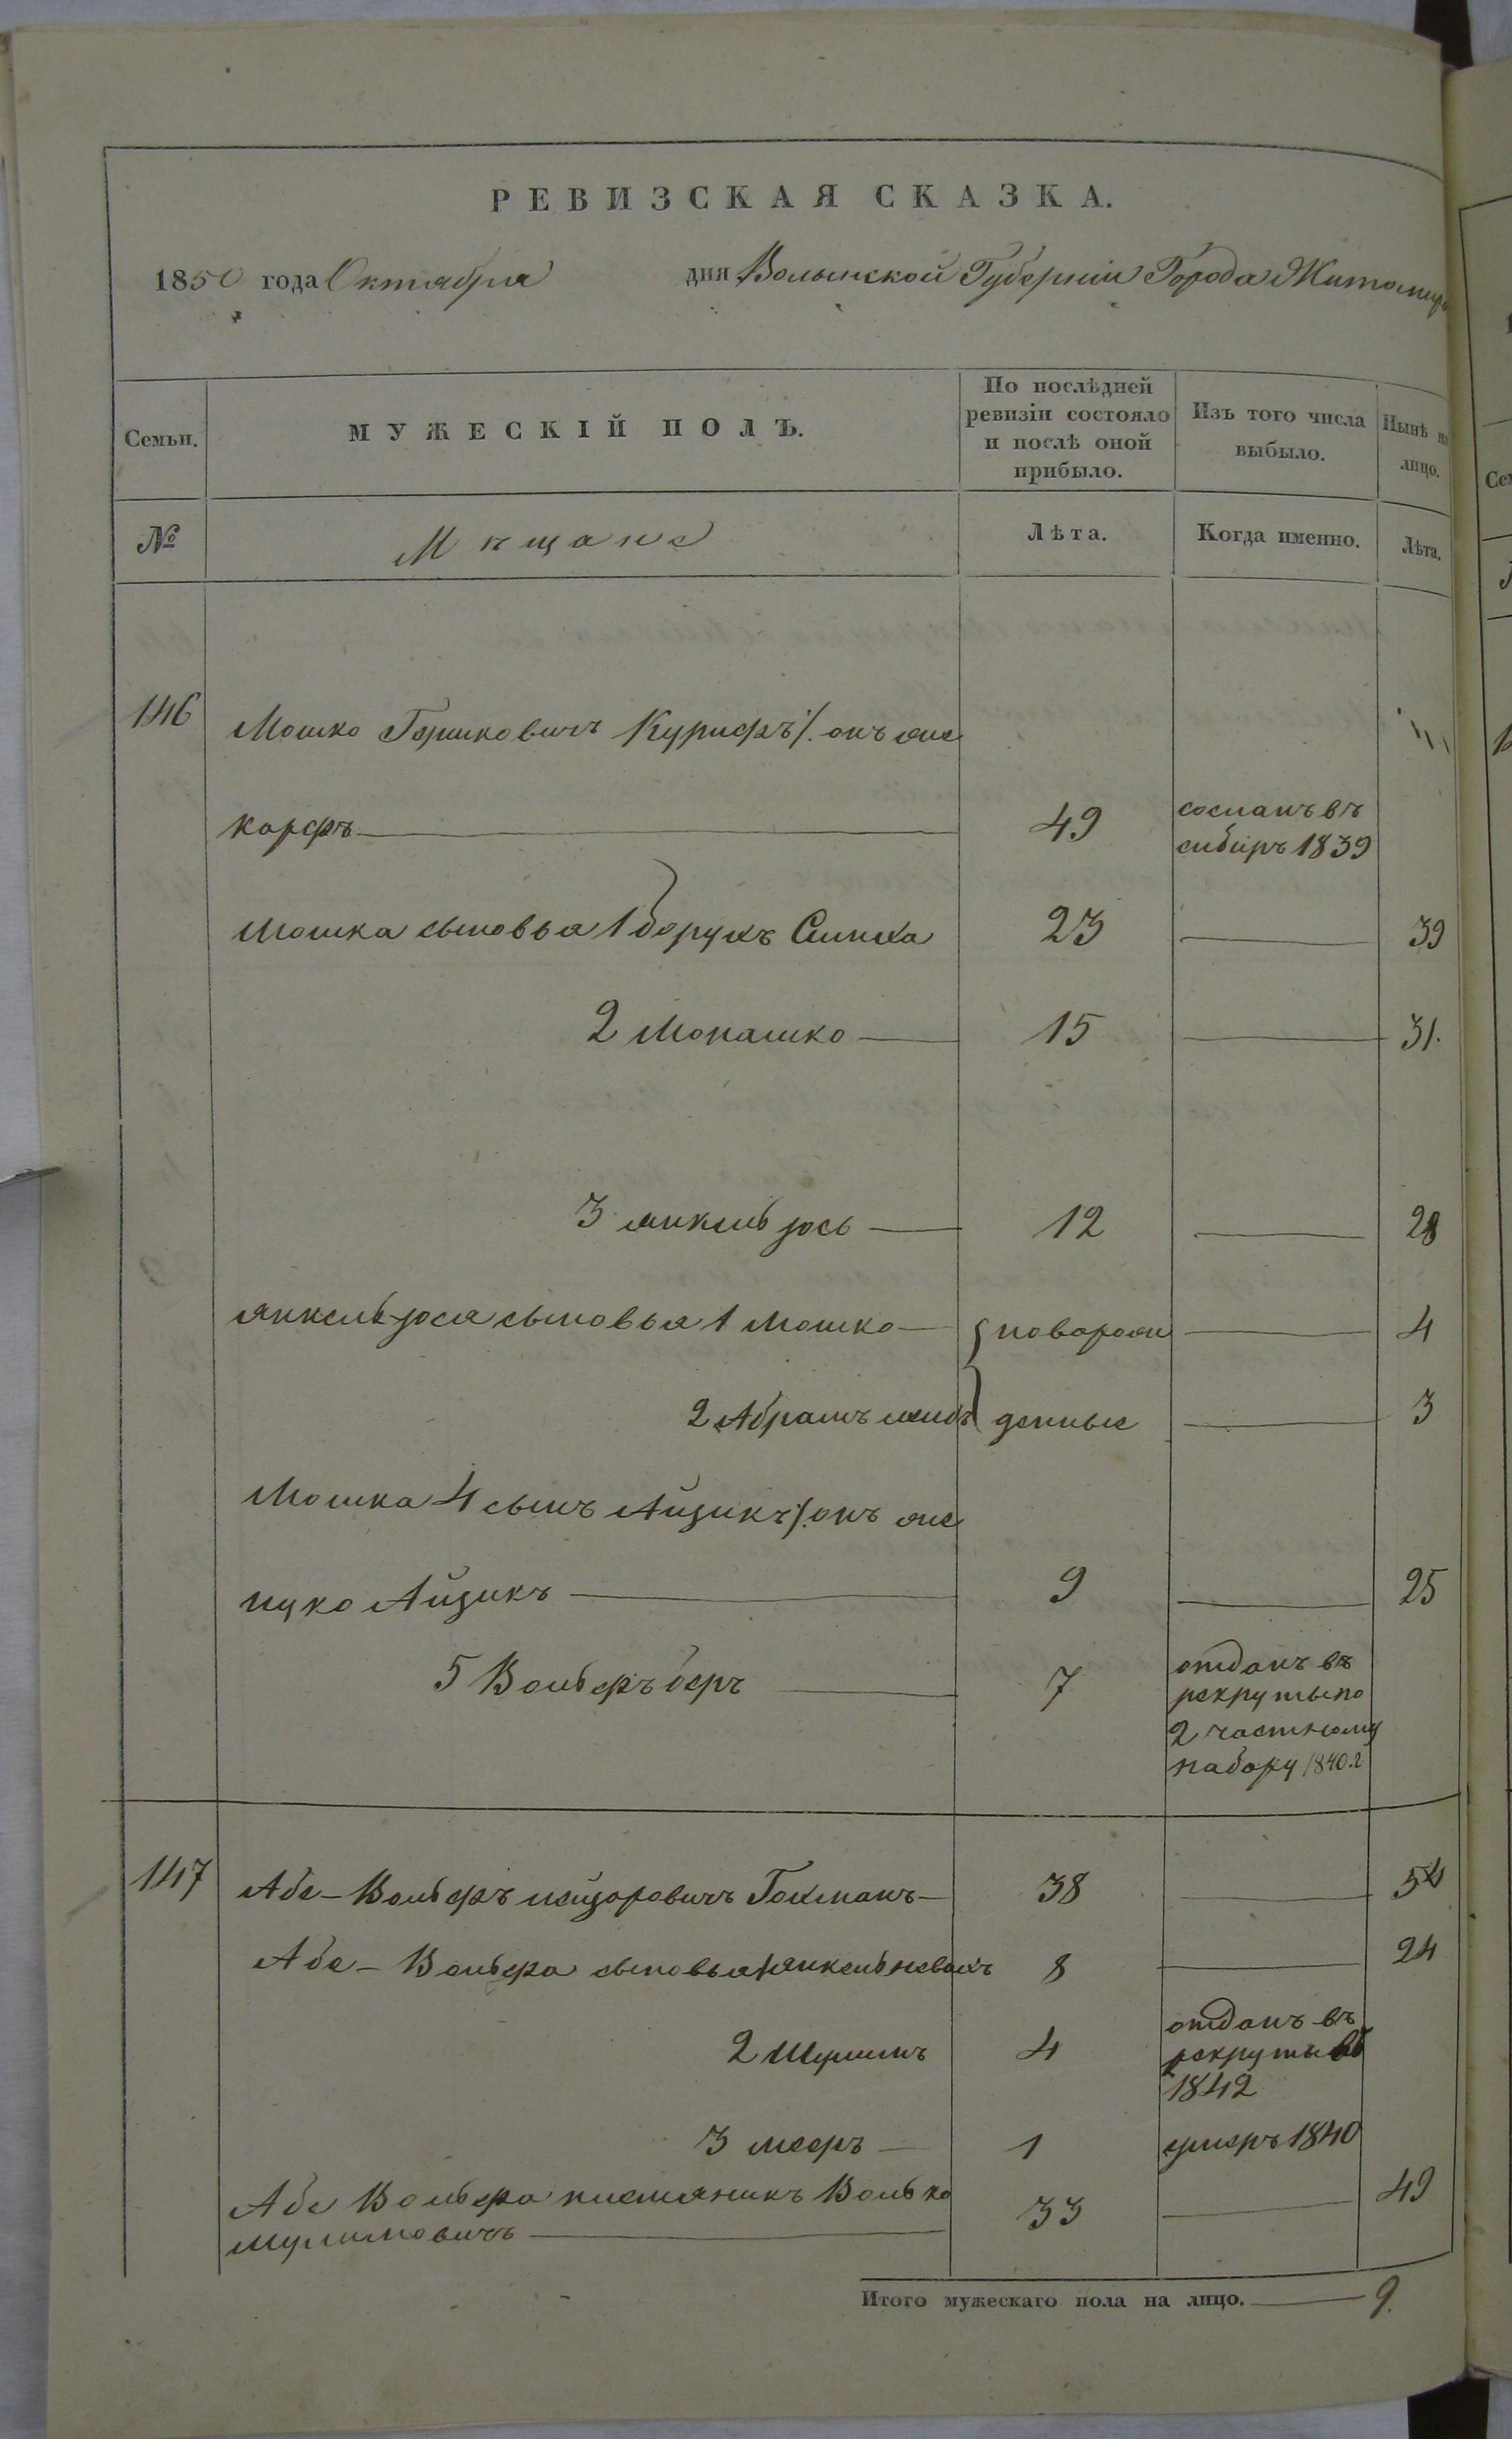 РЕВИЗСКАЯ СКАЗКА.
1850 года Октября дня Волынской Губерніи Города Житомира
Семьи. МУЖЕСКІЙ ПОЛЪ. По послѣдней ревизіи состояло и послѣ оной прибыло. Изъ того числа выбыло. Нынѣ на лицо.
№ Мѣщане Лѣта. Когда именно. Лѣта.
146 Мошко Гершковичъ Куриеръ /. онъ же
Кореръ 49 сосланъ въ сибиръ 1839
Мошка сыновья 1 берукъ Симха 23 39
2 Монашко 15 31.
3 янкель Іось 12 28
янкель-Іося сыновья 1 Мошко новорож 4
2 Абрамъ денные 3
Мошка 4 сынъ Айзикъ /. онъ же
Нуко Айзикъ 9 25
5 Вольфъ беръ 7 отданъ въ
рекруты по
2 частному
набору 1840.г
147 Абе-Вольфъ Гохманъ 38 54
Абе-Вольфа сыновья 1 янкель 8 24
2 4 отданъ въ
рекруты въ
1842
3 мееръ 1 умеръ 1840
Абе Вольфа племяникъ Волько 33 49
Итого мужескаго пола на лицо. 9.